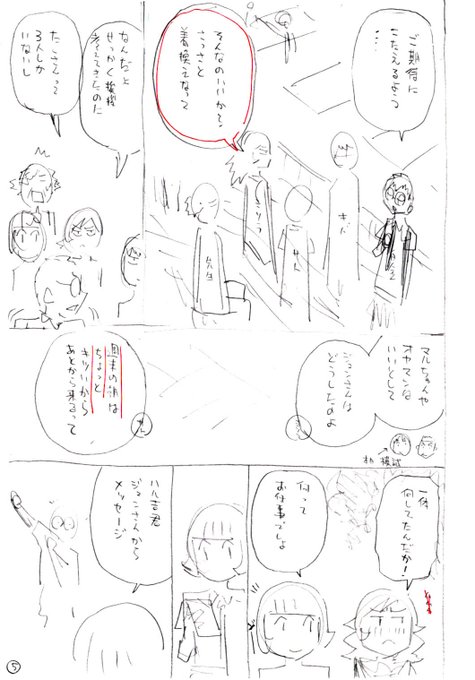 ご期待に
こたえるよう
・・・
そんなのいいから
さっさと
着換えなって
なんだと
せっかく
考えてきたのに
たこさんって
3人しか
いないし
キバ
先生
マルちゃんや
オヤマンは
いいとして
ジョンさんは
どうしたのよ
週末の油は
ちょっと
キツいから
あとから来るって
一体
何してたんだか!
何って
お仕事でしょ
ハル吉君
ジョンさんから
メッセージ
5